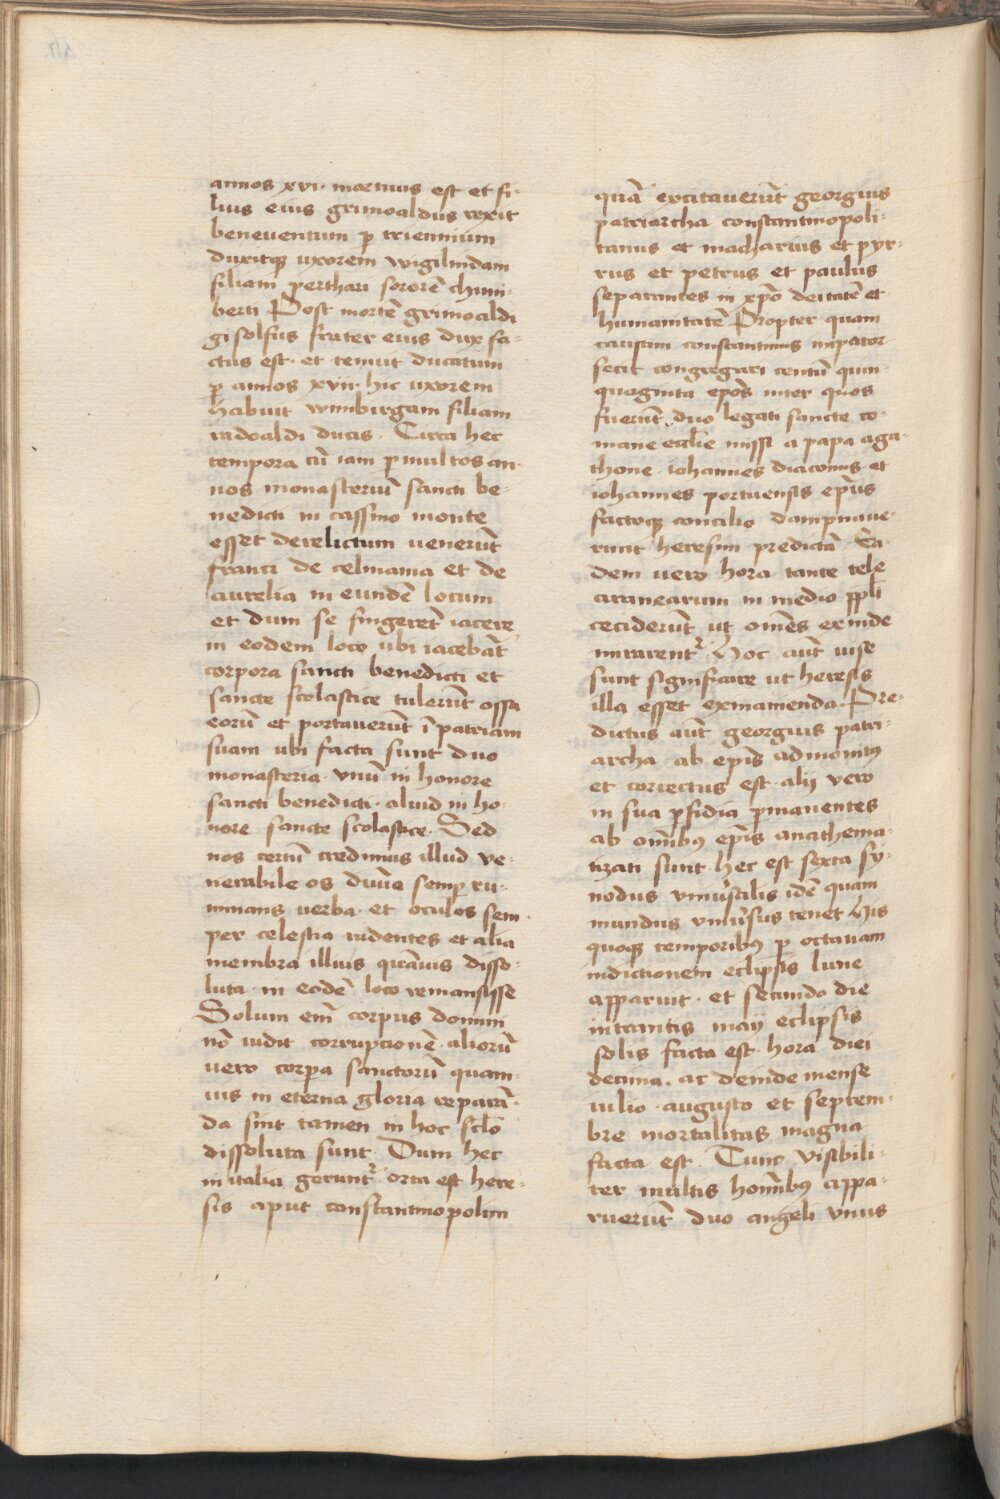 annos xvi· mortuus est et fi-
lius eius grimoaldus rexit
beneuentum p̱ triennium
duxitqꝫ uxorem wigilindam
filiam perthari sororē chuni-
berti Post mortē grimoaldi
gisolfus frater eius dux fa-
ctus est· et tenuit ducatum
p̱ annos xvii· hic uxorem
habuit winbirgam filiam
radoaldi ducis· Circa hec
tempora cū iam p̱ multos an-
nos monasteriū sancti be-
nedicti in cassino monte
esset derelictum uenerūt
franci de celmania et de
aurelia in eundē locum
et dum se fingerēt iacere
in eodem loco ubi iacebāt
corpora sancti benedicti et
sancte scolastice tulerūt ossa
eorū et portauerūt ī patriam
suam ubi facta sunt duo
monasteria· vnū in honore
sancti benedicti· aliud in ho-
nore sancte scolastice· Sed
nos certū credimus illud ve-
nerabile os diuīa semp̱ ru-
minans uerba· et oculos sem-
per celestia uidentes et alia
membra illius quāuis disso-
luta· in eodē loco remansisse
Solum eīm corpus domini
nō uidit corrupcionē· aliorū
uero corp̱a sanctorū quam-
uis in eterna gloria reparā-
da sint tamen in hoc sclō
dissoluta sunt· Dum hec
in italia gerunt᷑ orta est here-
sis aput constantinopolim
quā excitauerūt georgius
patriarcha constantinopoli-
tanus et macharius et pyr-
rus et petrus et paulus
separantes in xp̄o deitatē et
humanitatē Propter quam
causam constantinus imp̱ator
fecit congregari centū quin-
quaginta ep̄os inter quos
fuerūt duo legati sancte ro-
mane eccl̄ie missi a papa aga-
thone· iohannes diaconus· et
iohannes portuensis ep̄us
factoqꝫ concilio dampnaue-
runt heresim predictā Ea-
dem uero hora tante tele
aranearum in medio pp̄li
ceciderūt ut om̄es exinde
mirarent᷑ Hoc aūt uise
sunt significare ut heresis
illa esset eximanienda· Pre-
dictus aūt georgius patri-
archa ab ep̄is admonitꝰ
et correctus est· alij vero
in sua p̱fidia p̱manentes
ab om̄ibꝰ ep̄is anathema-
tizati sunt· hec est sexta sy-
nodus vniūsalis idē quam
mundus vniūsus tenet His
quoqꝫ temporibꝰ p̱ octauam
indictionem eclipsis lune
apparuit· et secundo die
intrantis maij eclipsis
solis facta est· hora diei
decima· ac deinde mense
iulio· augusto et septem-
bre mortalitas magna
facta est· Tunc visibili-
ter multis homībꝰ appa-
ruerūt duo angeli vnus